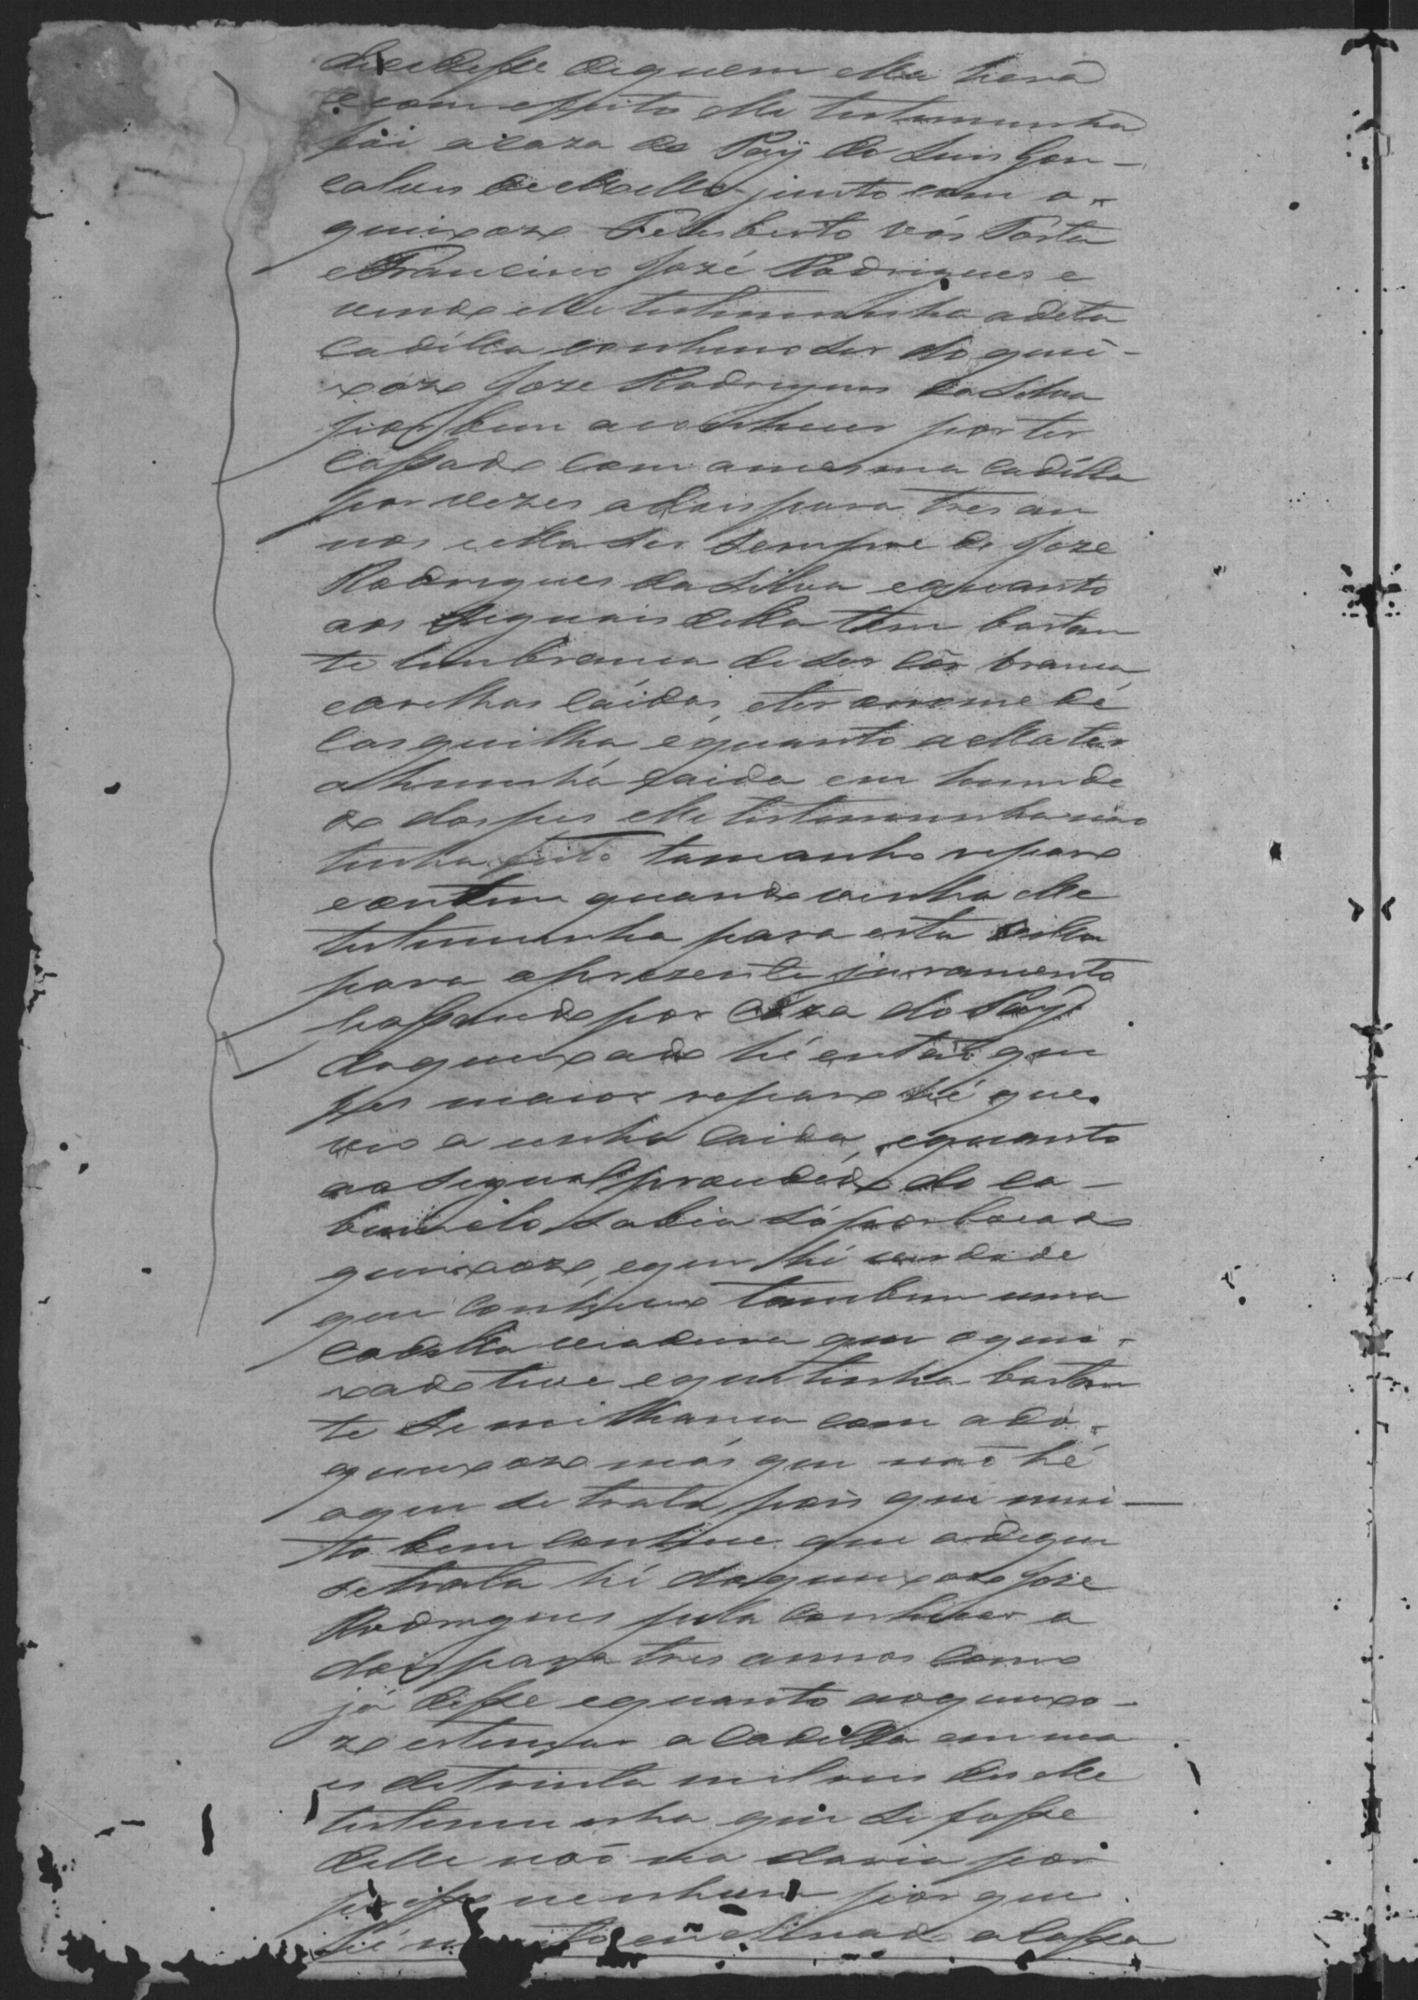 dice disse de quem ella hera
e com effeito elle testemunha
foi a caza do Pay do Luis Gon-
calves de Mello junto com o
queixozo Felisberto Vás Porto
e Francisco Jozé Rodrigues e
vendo elle testemunha a dita
Cadélla conheceo ser do quei-
xozo Joze Rodrigues da Silva
por bem a conhecer por ter
cassado com a mesma cadélla
por vezes a dois para tres an
nos e ella ser sempre de Joze
Rodrigues da Silva e quanto
aos signais della tem bastan
te lembranca de ser cor branca
e orelhas caidas, e ter o nome dé
Casquilha, e quanto a ella ter
a hunha caida em hum de
do dos pes elle testemunha não
tinha feito tamanho reparo
e contem quando vinha elle
testemunha para esta Villa
para o prezente juramento
passando por Caza do Pay
do queixado hé entaõ que
fes maior reparo hé que
vio a unha caida, e quanto
ao signal procedido do ca-
bunelo sabia só por boca do
queixozo, e que hé verdade
que conheceo tambem uma
cadella viadeira que o quei-
xado teve e que tinha bastan
te semilhanca com a do
queixozo más que naõ hé
a que se trata pois que mui-
to bem conhece que a de que
se trata hé do queixozo Joze
Rodrigues pela conhecer a
dois para tres annos como
já disse e quanto ao queixo-
zo estimar a Cadella em ma
is de trinta mil reis dis elle
testemunha que se fosse
delle naõ na daria por
preço nenhum por que
hé muito encellinada a Cassa